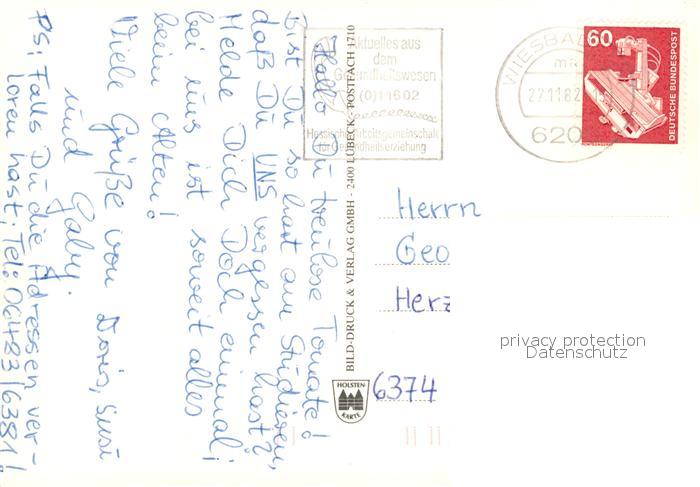 Hallo Du treulose Tomate!
Bist Du so hart am Studieren,
daß Du UNS vergessen hast?
Melde Dich Doch einmal;
bei uns ist soweit alles
beim Alten!
Viele Grüße von Doris, Susi
und Gaby.
PS: Falls Du die Adressen ver-
loren hast; Tel: 06483/6381!
BILD-DRUCK & VERLAG GMBH - 2400 LÜBECK - POSTFACH 1710
Aktuelles aus
dem
Gesundheitswesen
(0)11602
Hessische Arbeitsgemeinschaft
für Gesundheitserziehung
WIESBAD
27.11.82
620
60
DEUTSCHE BUNDESPOST
Herrn
Geo
Herz
6374
HOLSTEN-
KARTE
privacy protection
Datenschutz